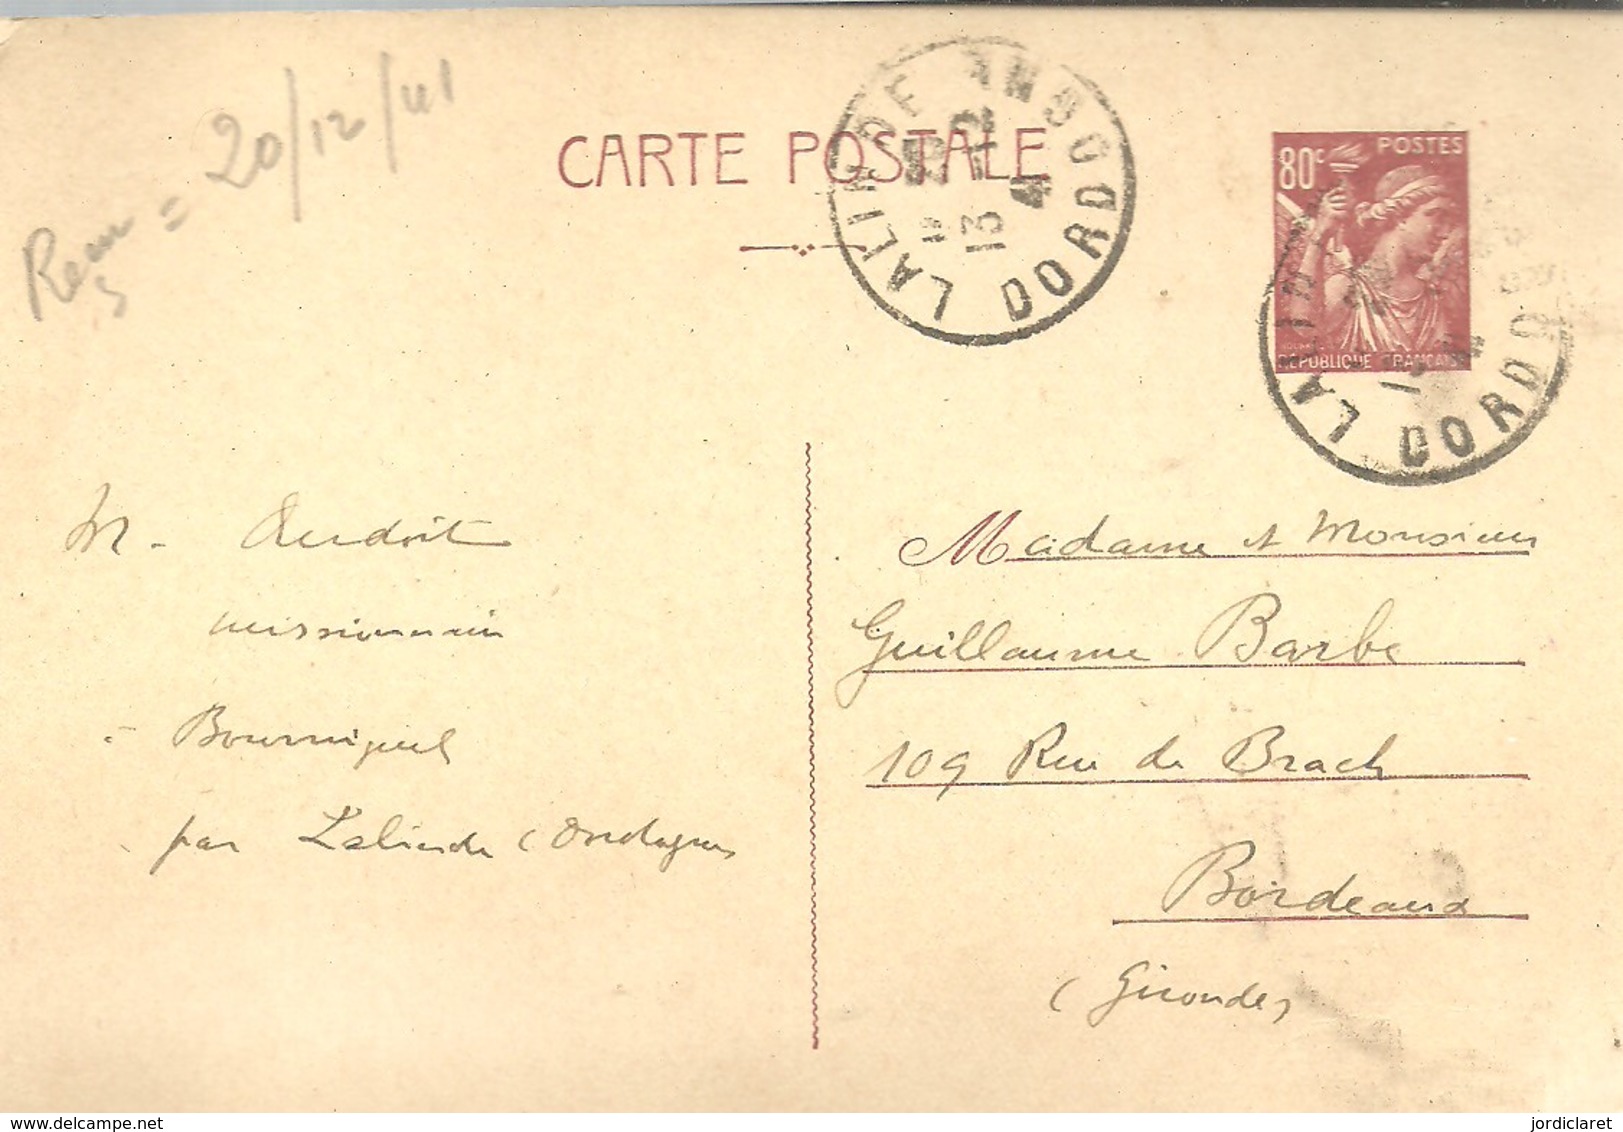 20/12/41
CARTE POSTALE
80c POSTES
RÉPUBLIQUE FRANÇAISE
LALINDE
DORDOGNE
13
LALIND
DORDO
M.
missionnaire
à Bourniquel
par Lalinde (Dordogne)
Madame et Monsieur
Guillaume Barbe
109 Rue de Brach
Bordeaux
(Gironde)
www.delcampe.net
jordiclaret